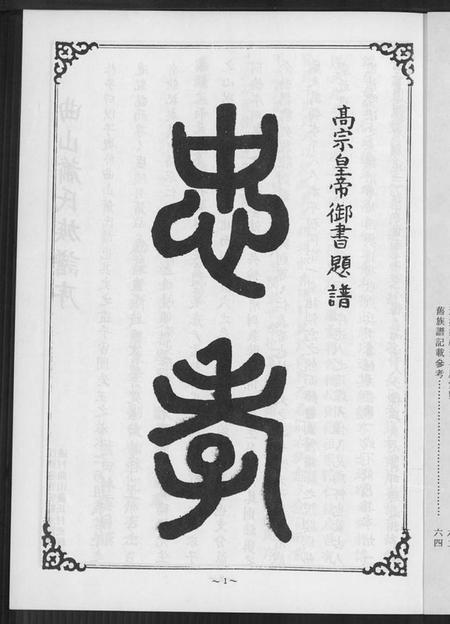 高宗皇帝御書題譜
忠孝
~1~
舊族譜記載參考
六四